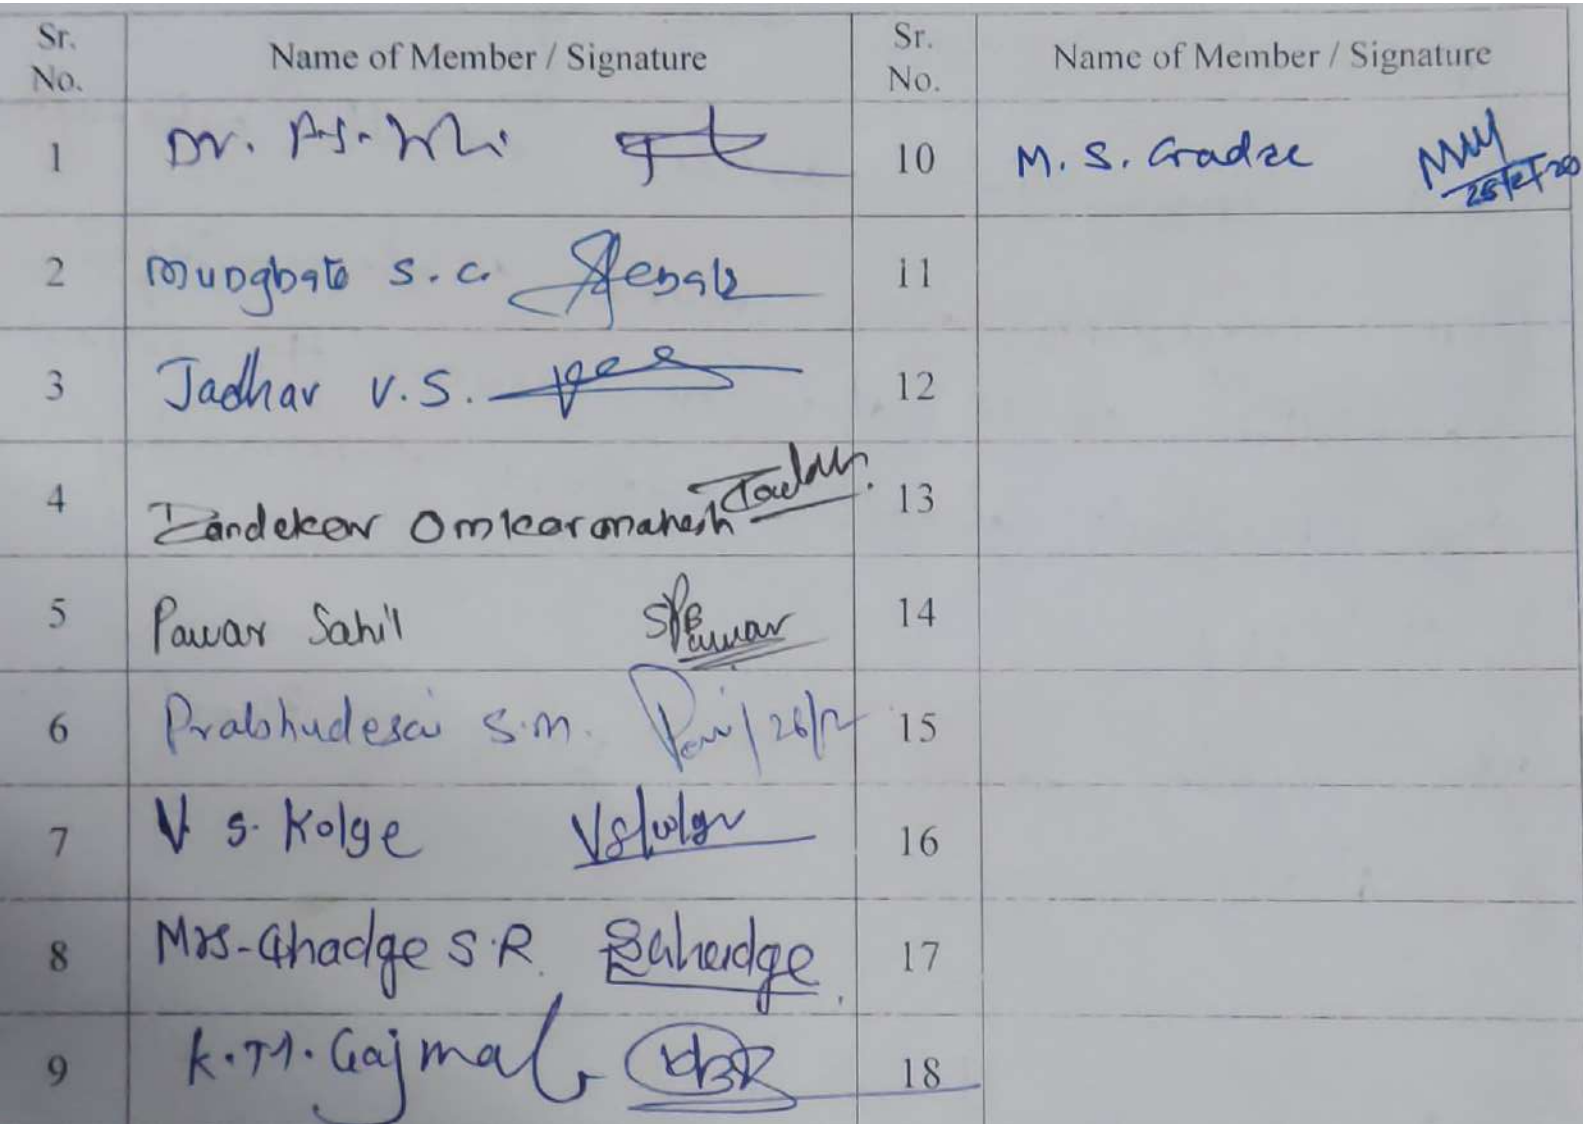 Sr. No. Name of Member / Signature Sr. No. Name of Member / Signature
1 Dr. 10 M. S. Gadre
2 S. C. 11
3 Jadhav V.S. 12
4 Dandekar Omkar mahesh 13
5 Pawar Sahil SPawar 14
6 Prabhudesai S.M. 26/12 15
7 V S. Kolge VSKolge 16
8 Mrs-Ghadge S.R. SGhadge 17
9 K.M. Gajmal 18